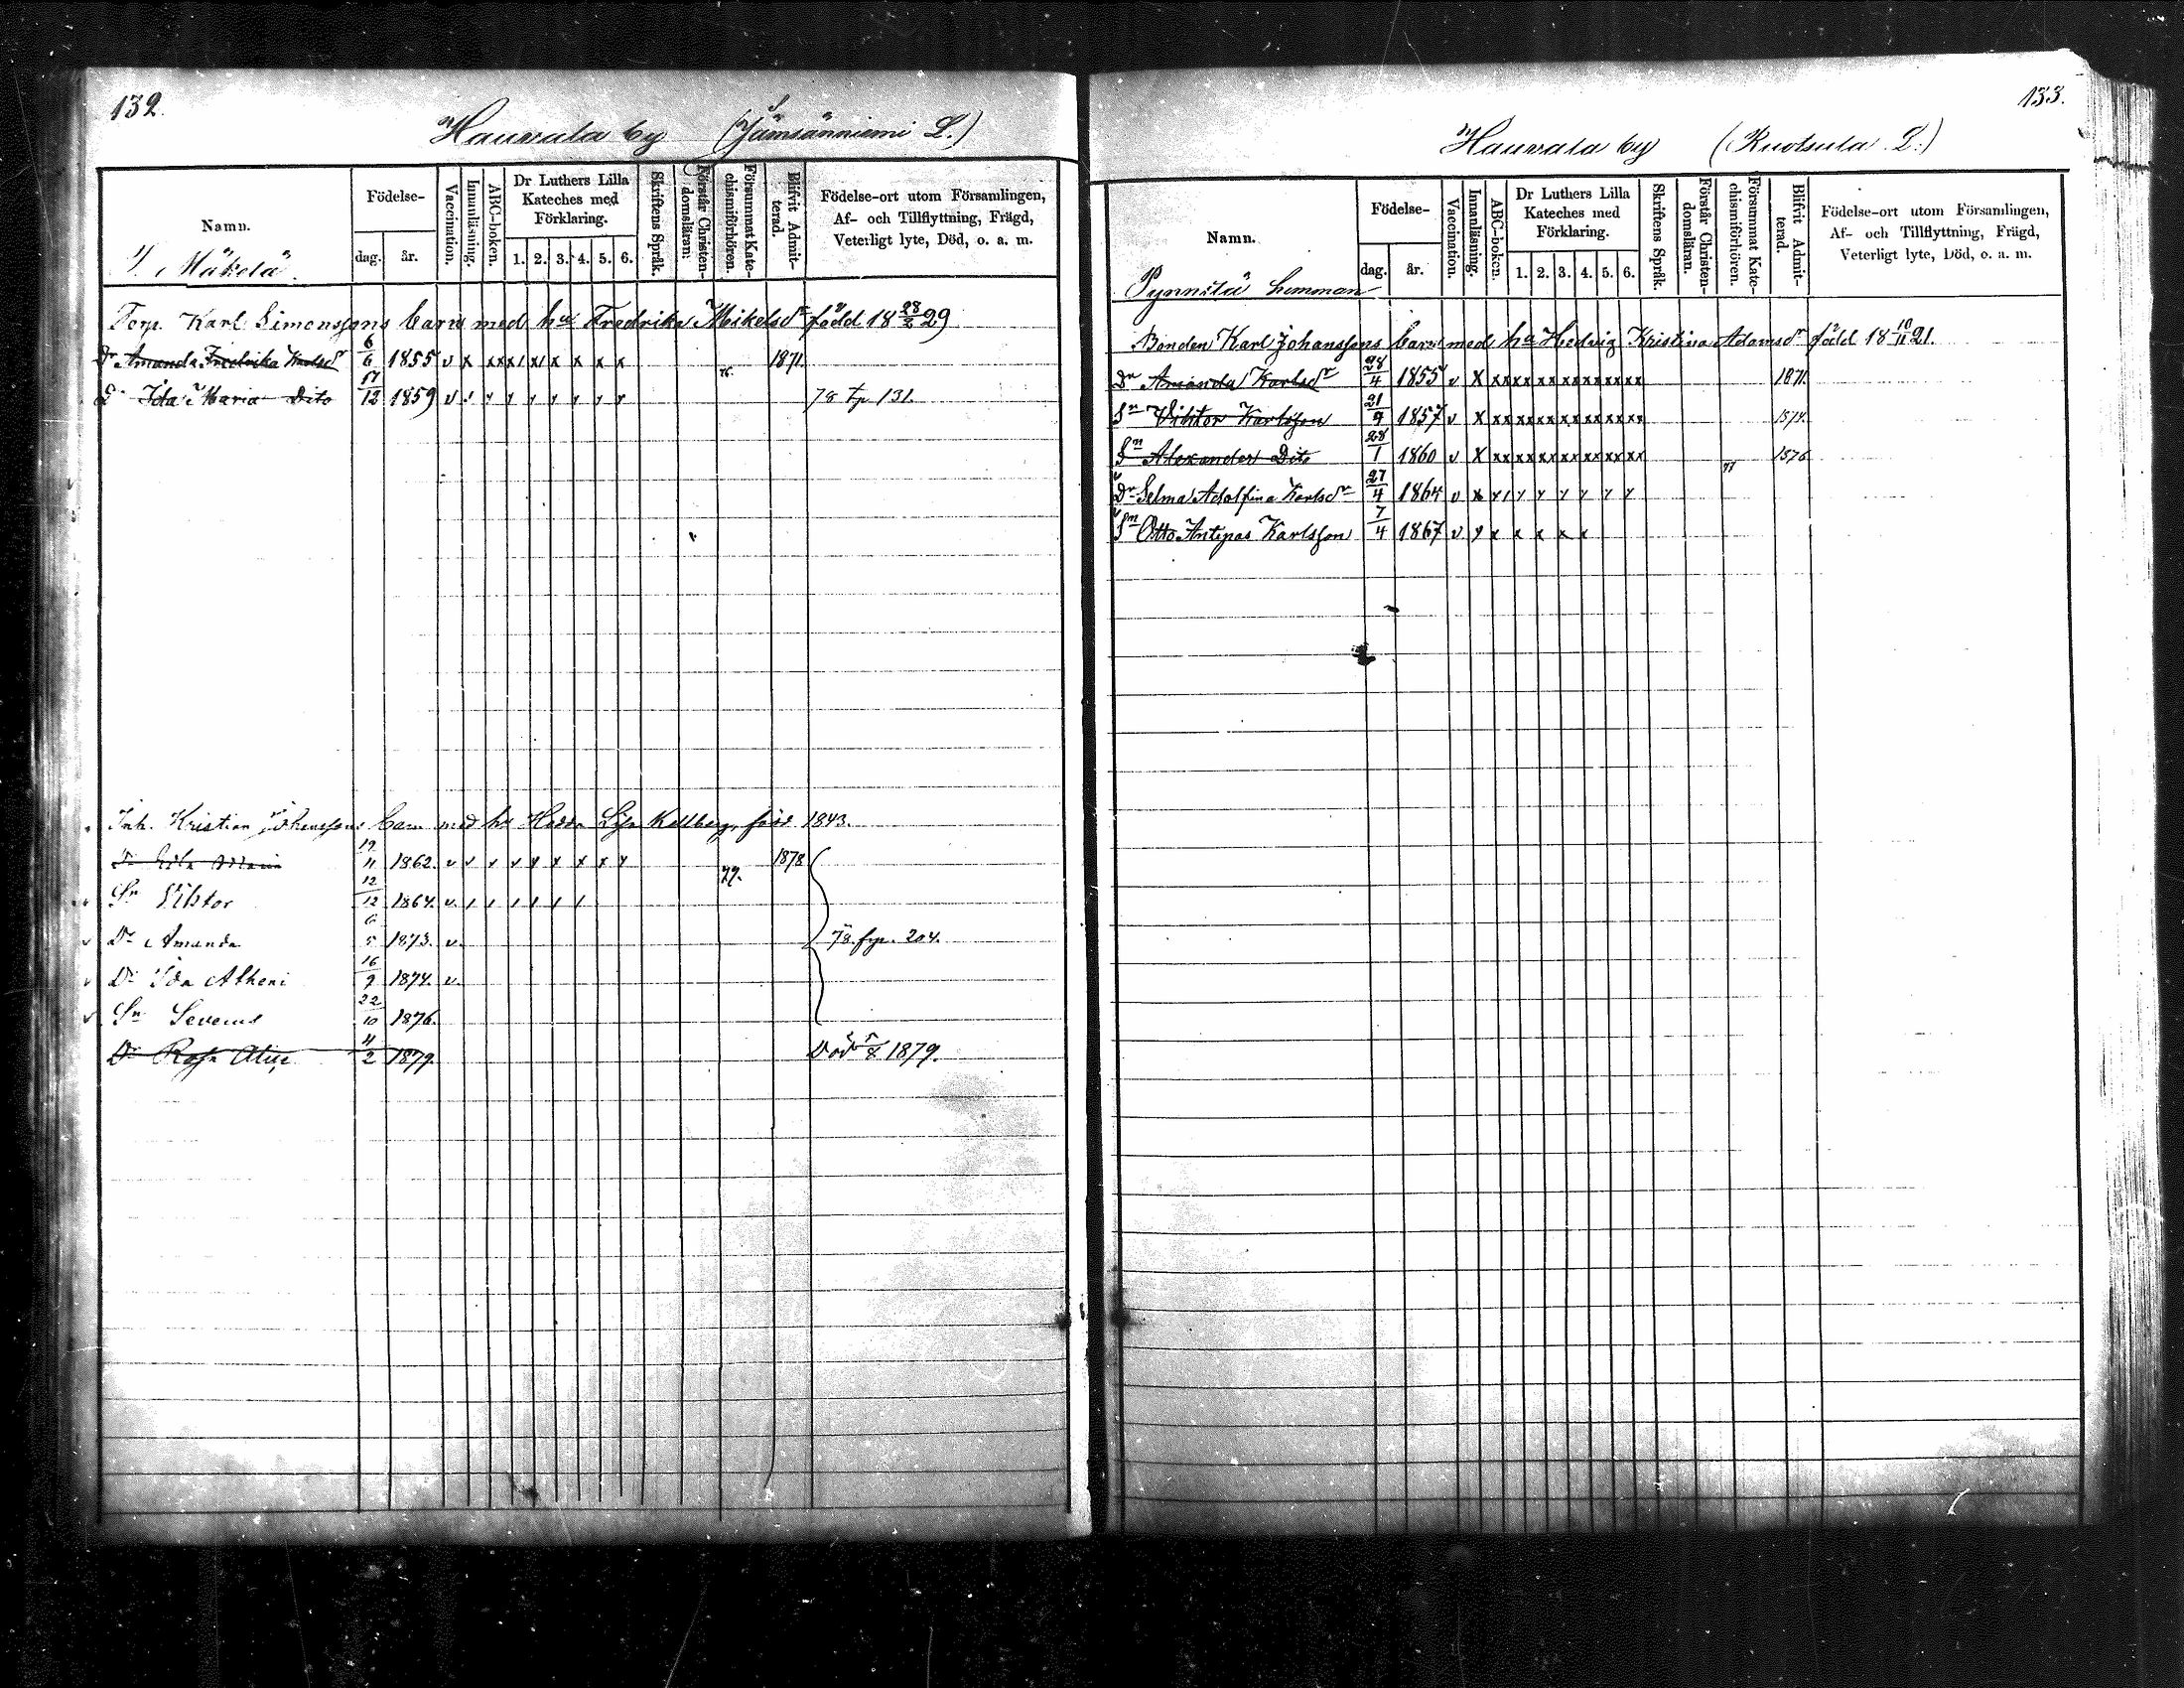 132.
Hauvala by (Jämsänniemi L.)
Namn.
Födelse-
dag.
år.
Vaccination.
Innanläsning.
ABC-boken.
Dr Luthers Lilla Kateches med Förklaring.
1. 2. 3. 4. 5. 6.
Skriftens Språk.
Förstår Christendomsläran.
Försummat Katechismiförhören.
Blifvit Admitterad.
Födelse-ort utom Församlingen, Af- och Tillflyttning, Frägd, Veterligt lyte, Död, o. a. m.
T. Mäkelä
Torp. Karl Simonssons barn med hu Fredrika Mikelsdr född 18 28/2 29
Dr Amanda Fredrika Karlsdr 6/6 1855 v x x x x x x x x x 76. 1871.
Dr Ida Maria Dito 17/12 1859 v 78 tp 131.
Inh. Kristian Johanssons barn med hu Hedda Lisa Kellberg, född 1843.
Maria 19/11 1862. v v 77. 1878
Sn Viktor 12/12 1864. v
Dr Amanda 6/5 1873. v. 78. frp. 204.
Dr Ida Atheni 16/9 1874. v.
Sn Severus 22/10 1876.
Dr Rosa Alise 11/2 1879. Död 5/8 1879.
133.
Hauvala by (Knotsula L.)
Namn.
Födelse-
dag.
år.
Vaccination.
Innanläsning.
ABC-boken.
Dr Luthers Lilla Kateches med Förklaring.
1. 2. 3. 4. 5. 6.
Skriftens Språk.
Förstår Christendomsläran.
Försummat Katechismiförhören.
Blifvit Admitterad.
Födelse-ort utom Församlingen, Af- och Tillflyttning, Frägd, Veterligt lyte, Död, o. a. m.
Pynnilä hemman
Bonden Karl Johanssons barn med hu Hedvig Kristina Adamsdr född 18 10/11 21.
Dr Amanda Karlsdr 28/4 1855 v x xx xx xx xx xx xx xx 1871.
Sn Viktor Karlsson 21/9 1857 v x xx xx xx xx xx xx xx 1874.
Sn Alexander Dito 28/1 1860 v x xx xx xx xx xx xx xx 77 1876
Dr Selma Adolfina Karlsdr 27/4 1864 v x
Sn Otto Antipas Karlsson 7/4 1867 v x x x x x